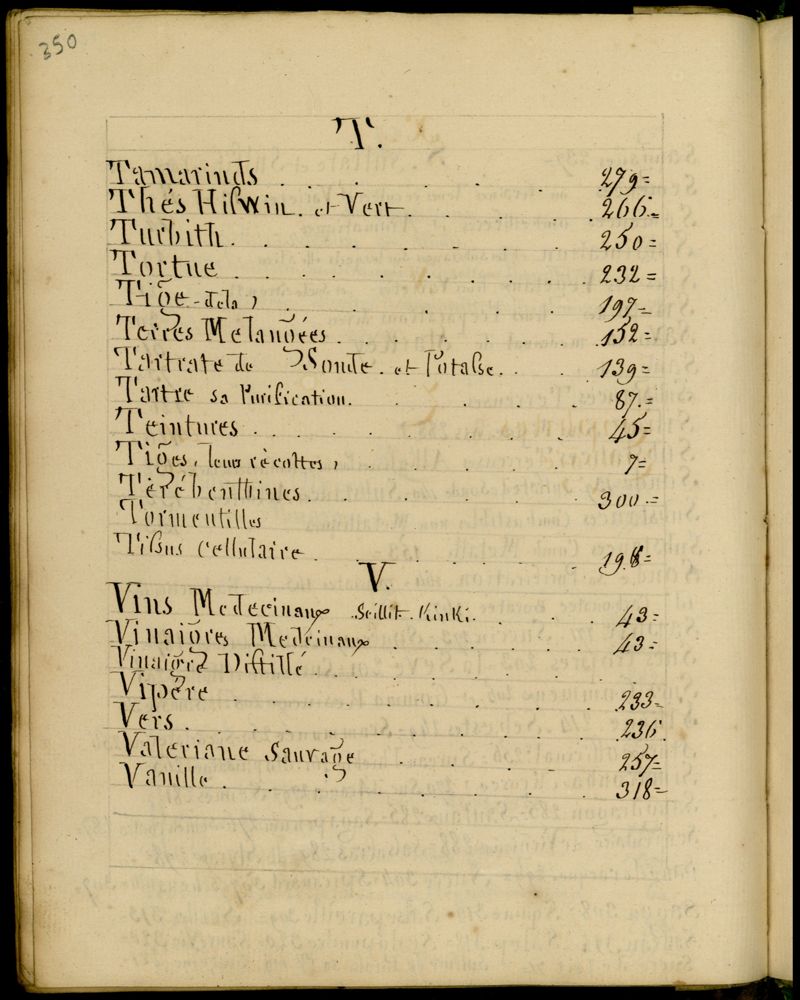 350
T.
Tamarinds . . . . . 279=
Thés Hiswin. et Vert . . . 266=
Turbith. . . . . . 250=
Tortue . . . . . . 232=
Tige - dela , . . . . . 197=
Terres Melangées . . . . . 152=
Tartrate de Soude. et Potasse. . . 139=
Tartre sa Purification. . . . 87.=
Teintures . . . . . 45=
Tiges, leurs récoltes , . . . 7=
Térébenthines . . . . . 300=
Tormentilles
Tissus Cellulaire . . . . . 198=
V.
Vins Medecinaux Scillit. Kinki. . . . 43=
Vinaigres Medcinaux . . . . 43=
Vinaigre Distillé . . . .
Vipère . . . . . 233=
Vers . . . . . 236.
Valeriane Sauvage . . . . 257=
Vanille . . . . . 318=